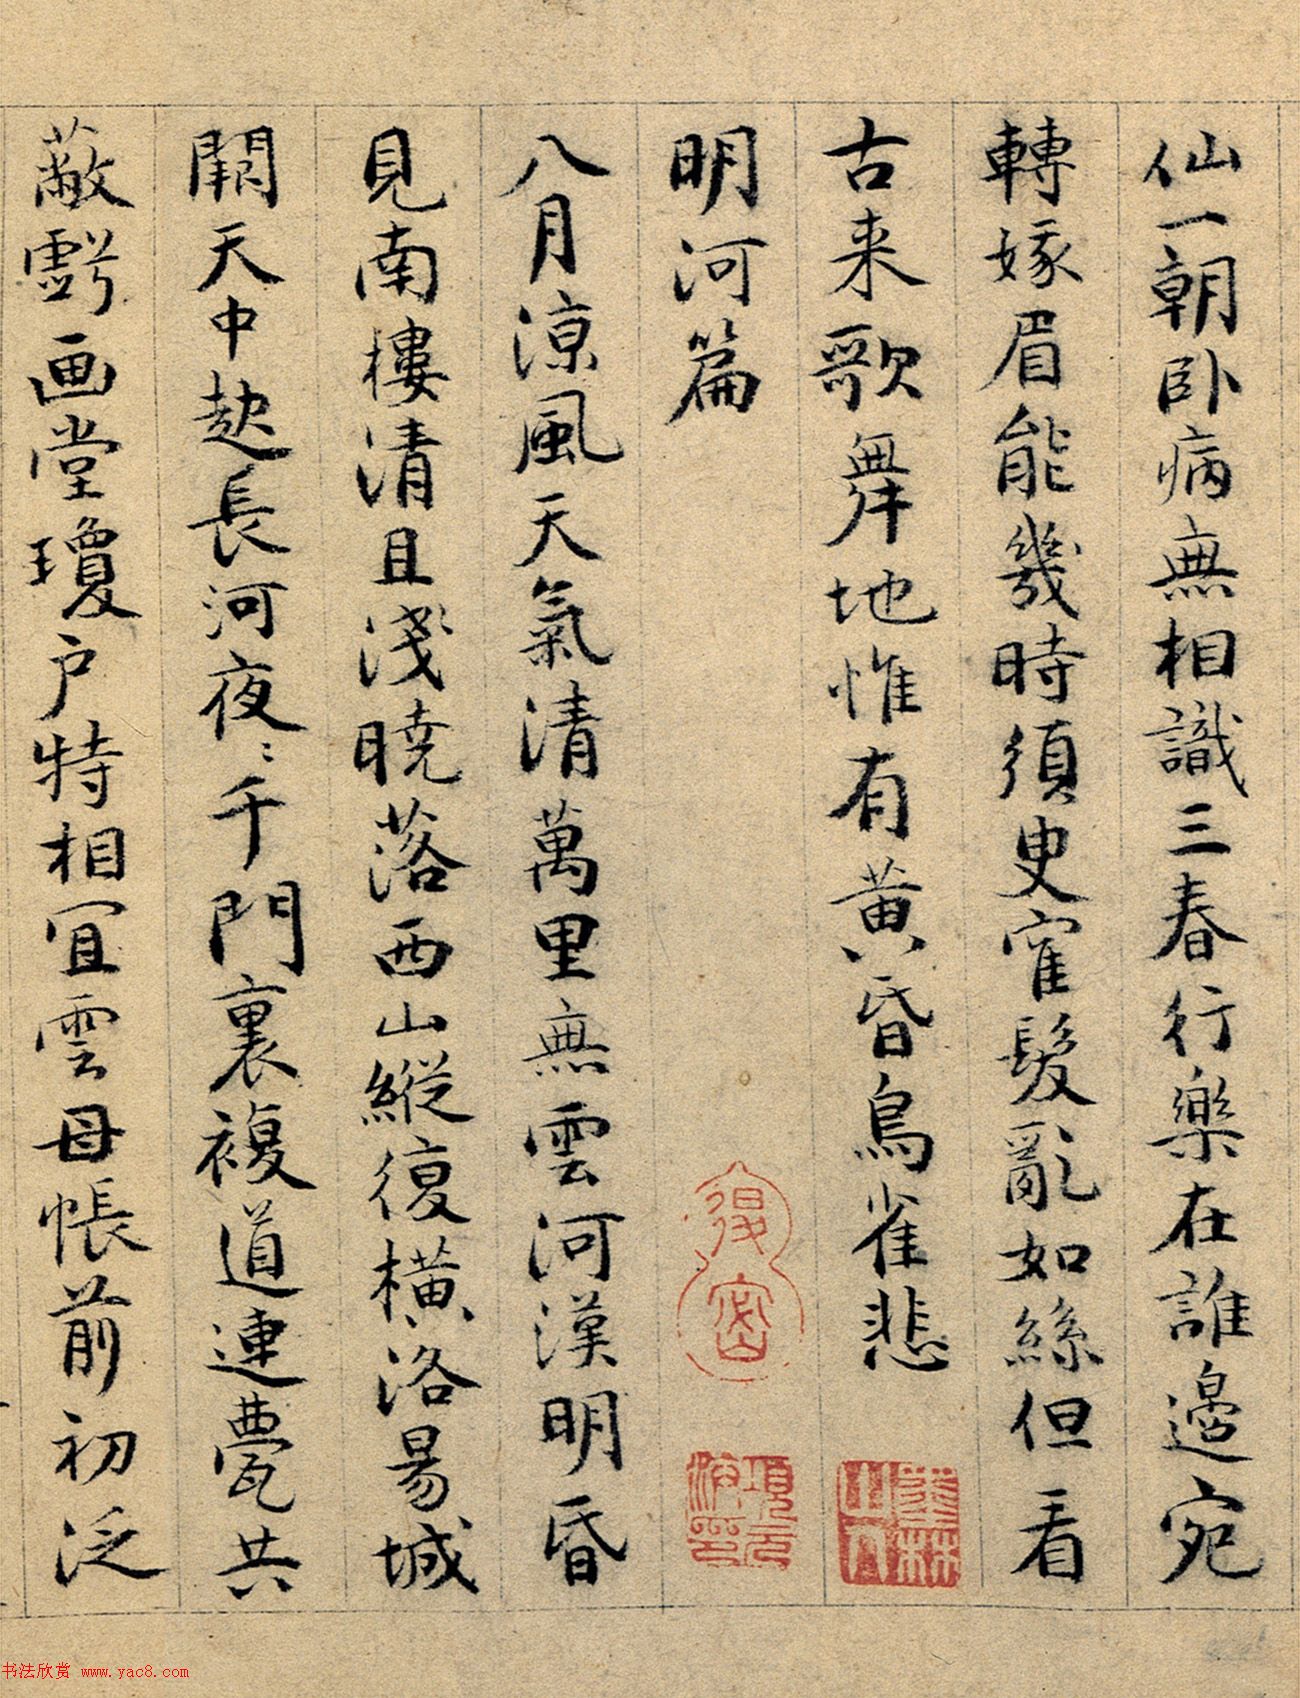 仙一朝卧病無相識三春行樂在誰邊宛
轉娥眉能幾時須臾寉髮亂如絲但看
古来歌舞地惟有黄昏鳥雀悲
明河篇
八月涼風天氣清萬里無雲河漢明昏
見南樓清且淺曉落西山縱復橫洛昜城
闕天中起長河夜〻千門裏複道連甍共
蔽虧画堂瓊户特相宜雲母帳前初泛
墨林山人
退密
項元汴印
书法欣赏 www.yac8.com